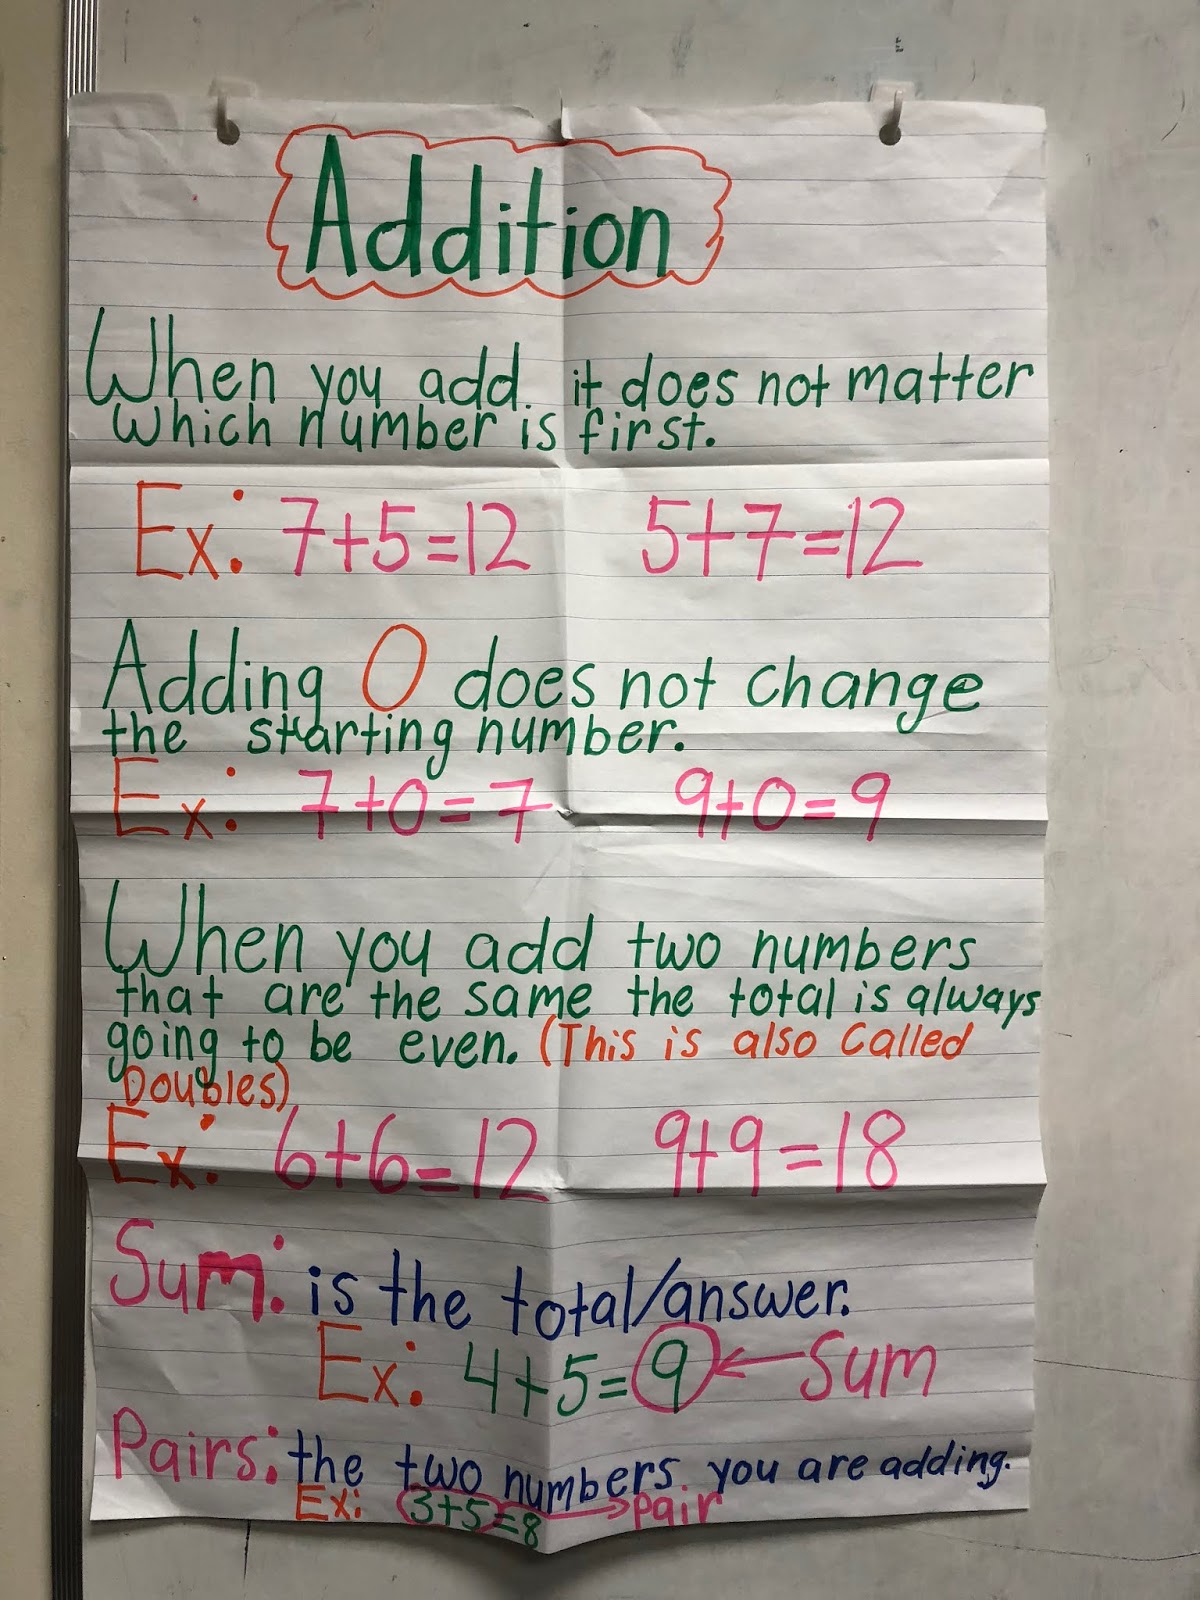 Addition
When you add it does not matter
which number is first.
Ex: 7+5=12 5+7=12
Adding 0 does not change
the starting number.
Ex: 7+0=7 9+0=9
When you add two numbers
that are the same the total is always
going to be even. (This is also called
Doubles)
Ex: 6+6=12 9+9=18
Sum: is the total/answer.
Ex: 4+5=9 ← Sum
Pairs: the two numbers you are adding.
Ex: 3+5=8 → pair